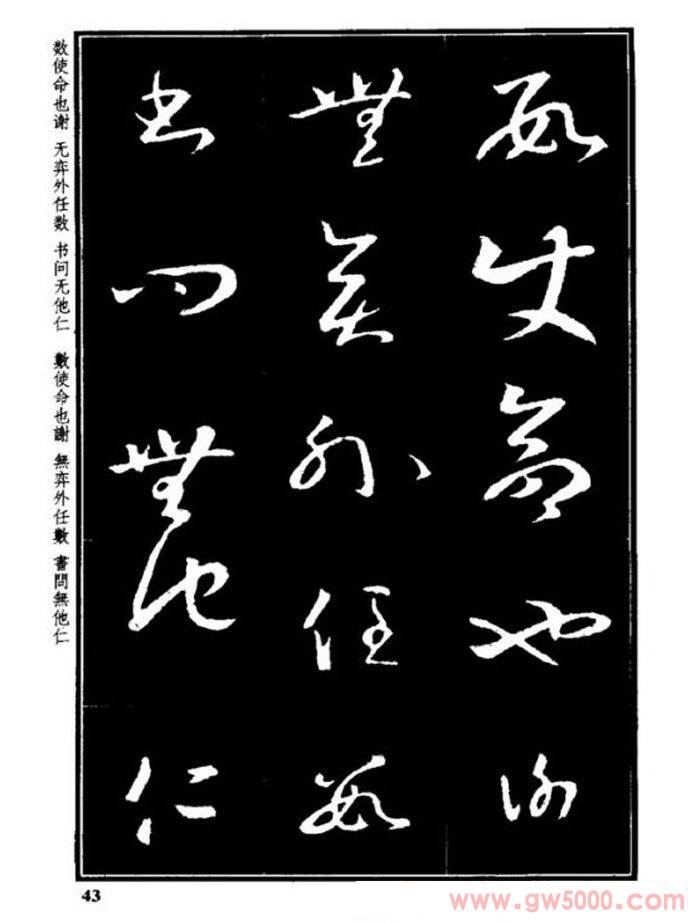 數使命也謝
無弈外任數
書問無他仁
数使命也谢 无弈外任数 书问无他仁 數使命也謝 無弈外任數 書問無他仁
43
www.gw5000.com